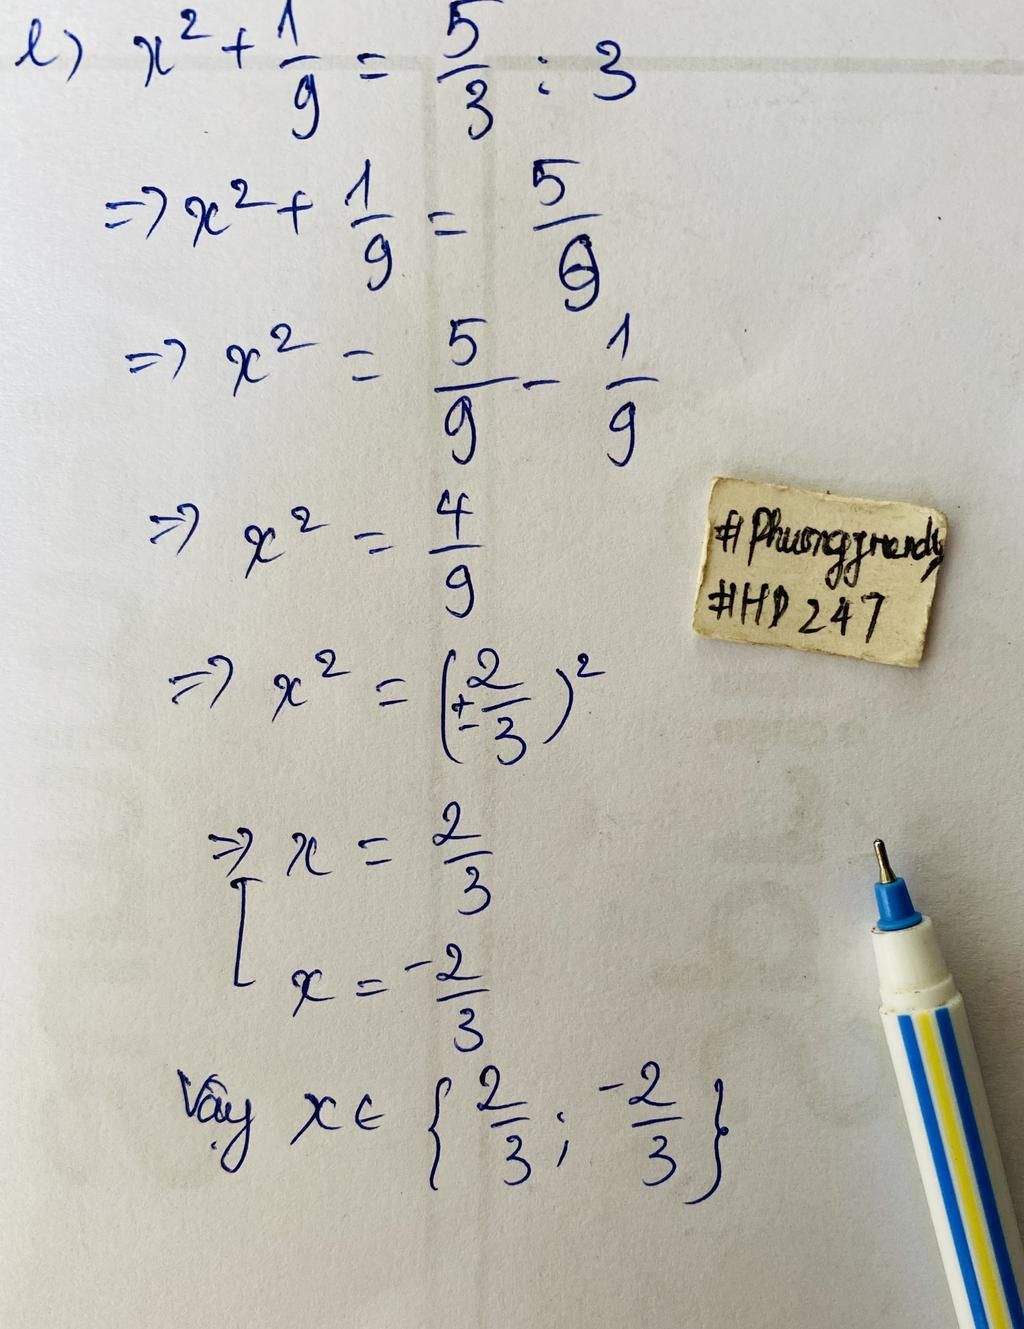 l) x² + 1/9 = 5/3 : 3
=> x² + 1/9 = 5/9
=> x² = 5/9 - 1/9
=> x² = 4/9
=> x² = (± 2/3)²
=> x = 2/3
x = -2/3
Vậy x ∈ {2/3 ; -2/3}
#HD 247